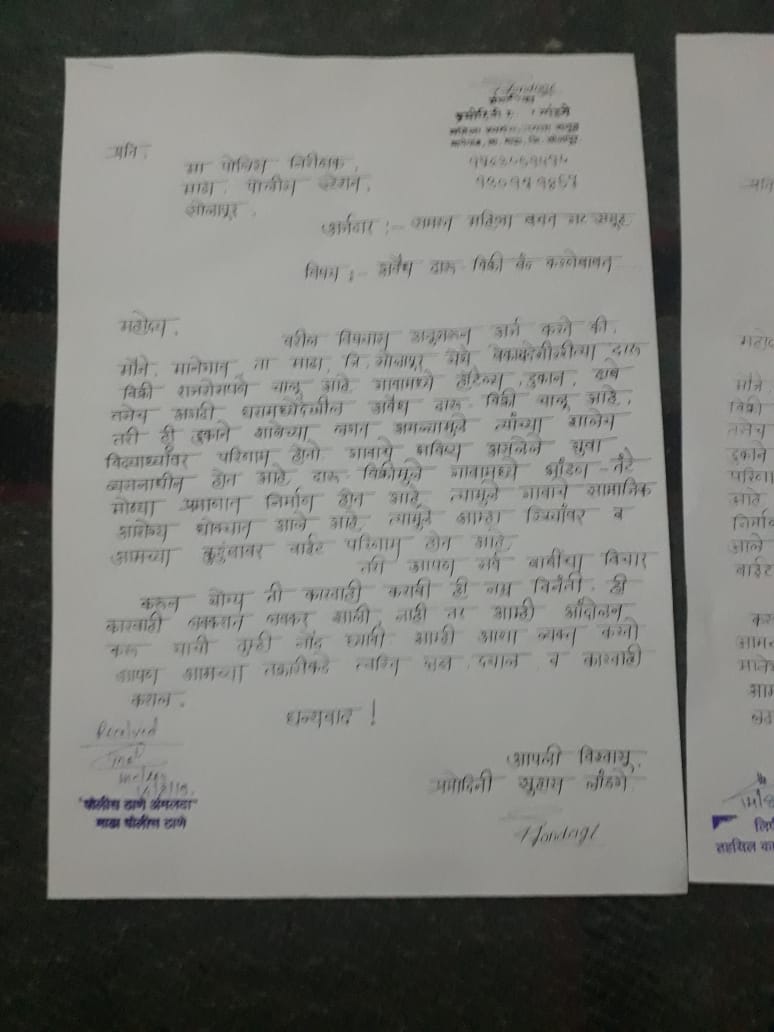 प्रति,
मा पोलिस निरीक्षक,
माढा, पोलीस स्टेशन,
सोलापूर.
अर्जदार :- समस्त महिला बचत गट समूह
विषय :- अवैध दारू विक्री बंद करणेबाबत
महोदय,
वरील विषयास अनुसरून अर्ज करते की,
मौजे, मानेगाव, ता माढा, जि, सोलापूर येथे बेकायदेशीररित्या दारू
विक्री राजरोसपणे चालू आहे. गावामध्ये हॉटेल्स, दुकान, ढाबे
तसेच अगदी घरामध्येदेखील अवैध दारू विक्री चालू आहे,
तरी ही दुकाने शाळेच्या लगत असल्यामुळे त्यांच्या शालेय
विद्यार्थ्यांवर परिणाम होतो. गावाचे भविष्य असलेले युवा
व्यसनाधीन होत आहे. दारू विक्रीमुळे गावामध्ये भांडण तंटे
मोठ्या प्रमाणात निर्माण होत आहे. त्यामुळे गावाचे सामाजिक
आरोग्य धोक्यात आले आहे. त्यामुळे आम्हा स्त्रियांवर व
आमच्या कुटुंबावर वाईट परिणाम होत आहे.
तरी आपण सर्व बाबींचा विचार
करून योग्य ती कारवाही करावी ही नम्र विनंती. ही
कारवाही लवकरात लवकर झाली, नाही तर आम्ही आंदोलन
करू याची तुम्ही नोंद घ्यावी आम्ही आशा व्यक्त करतो
आपण आमच्या तक्रारीकडे त्वरित लक्ष द्याल व कारवाही
कराल.
धन्यवाद !
Received
आपली विश्वासू,
प्रमोदिनी सुहास लांडगे
"पोलीस ठाणे अंमलदा"
माढा पोलीस ठाणे